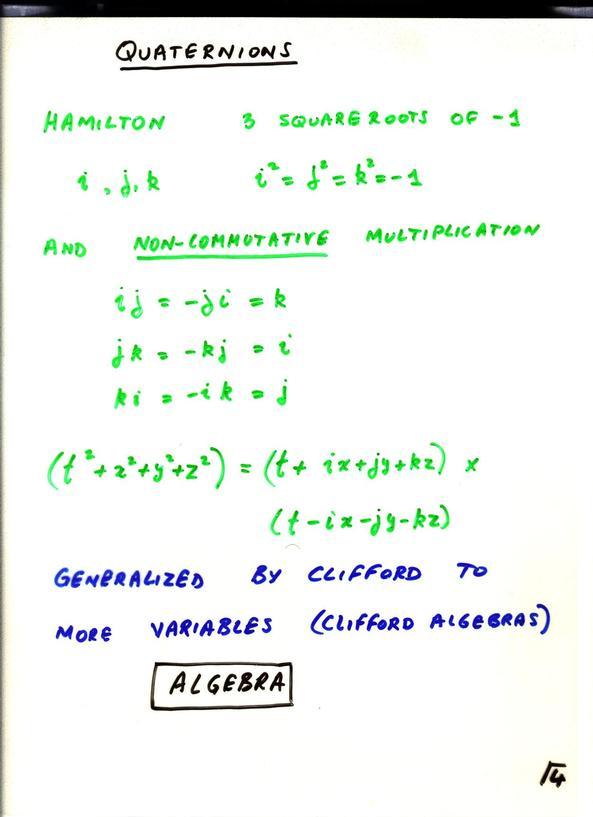 QUATERNIONS
HAMILTON 3 SQUARE ROOTS OF -1
i, j, k i² = j² = k² = -1
AND NON-COMMUTATIVE MULTIPLICATION
ij = -ji = k
jk = -kj = i
ki = -ik = j
(t² + x² + y² + z²) = (t + ix + jy + kz) x
(t - ix - jy - kz)
GENERALIZED BY CLIFFORD TO
MORE VARIABLES (CLIFFORD ALGEBRAS)
ALGEBRA
√4